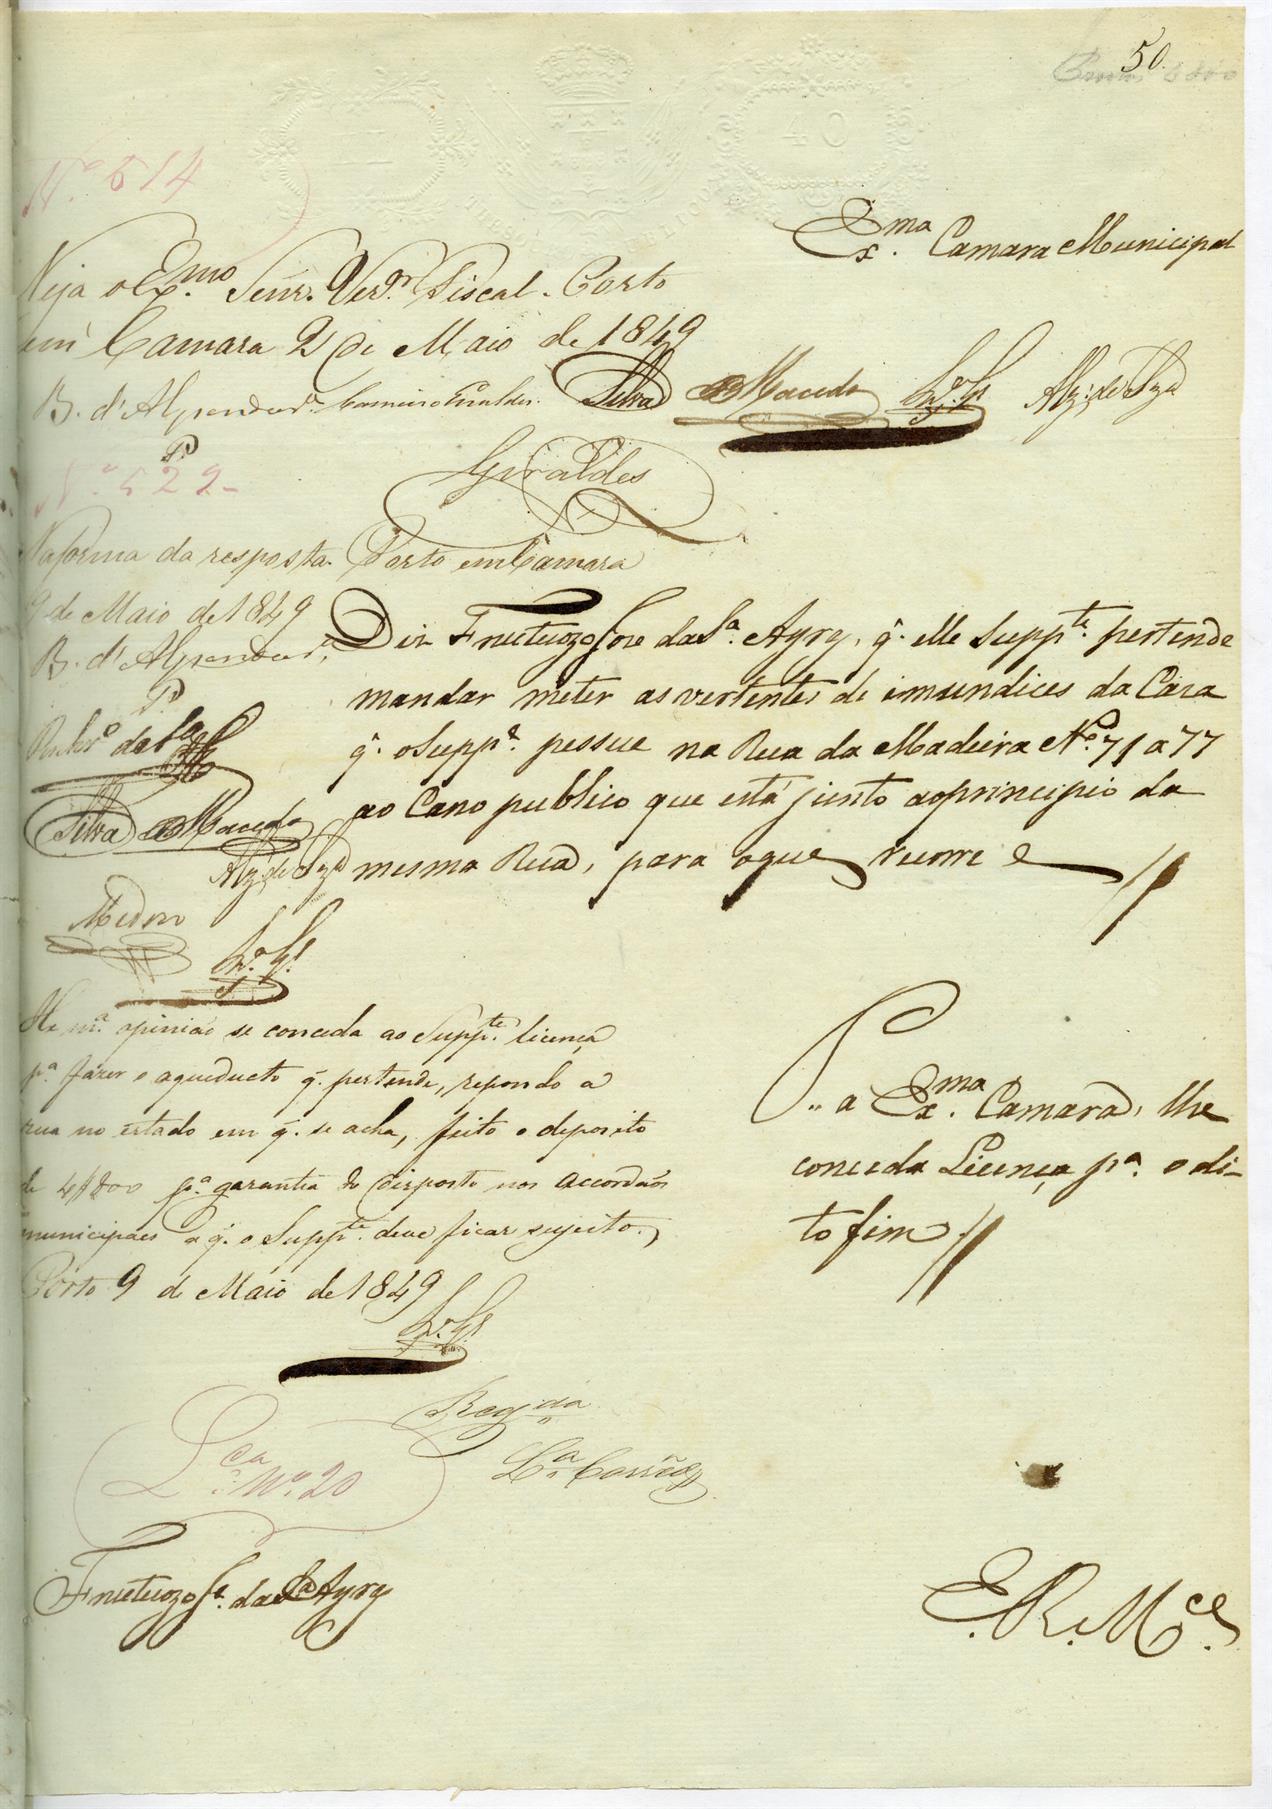 50.
40
Nº 514
Exma. Camara Municipal
Veja o Exmo. Senr. Verºr. Fiscal. Porto
em Camara 2 de Maio de 1849
B. d'Alpendurª.
P.
Silva Macedo Alz. de Sza
Giraldes
Nº 522
Na forma da resposta. Porto em Camara
9 de Maio de 1849
B. d'Alpendurª.
P.
Silva Macedo
Alz. de Sza
Diz Fructuozo Joze da Sª. Ayry, q. elle Suppte. pertende
mandar meter as vertentes de imundices da Caza
q. o Suppe. pessue na Rua da Madeira Nº 71 a 77
ao Cano publico que está junto ao principio da
mesma Rua, para o que recorre e
He mª. opinião se conceda ao Suppte. licença
pª fazer o aqueducto q. pertende, repondo a
rua no estado em q. se acha, feito o deposito
de 4$800 pª. garantia do disposto nos accordãos
municipaes a q. o Suppte. deve ficar sujeito.
Porto 9 de Maio de 1849
P. a Exma. Camara, lhe
conceda Licença pª. o di-
to fim
Regda
Lca. Nº. 20
Fructuozo Je. da Sª Ayry
E. R. Mce.